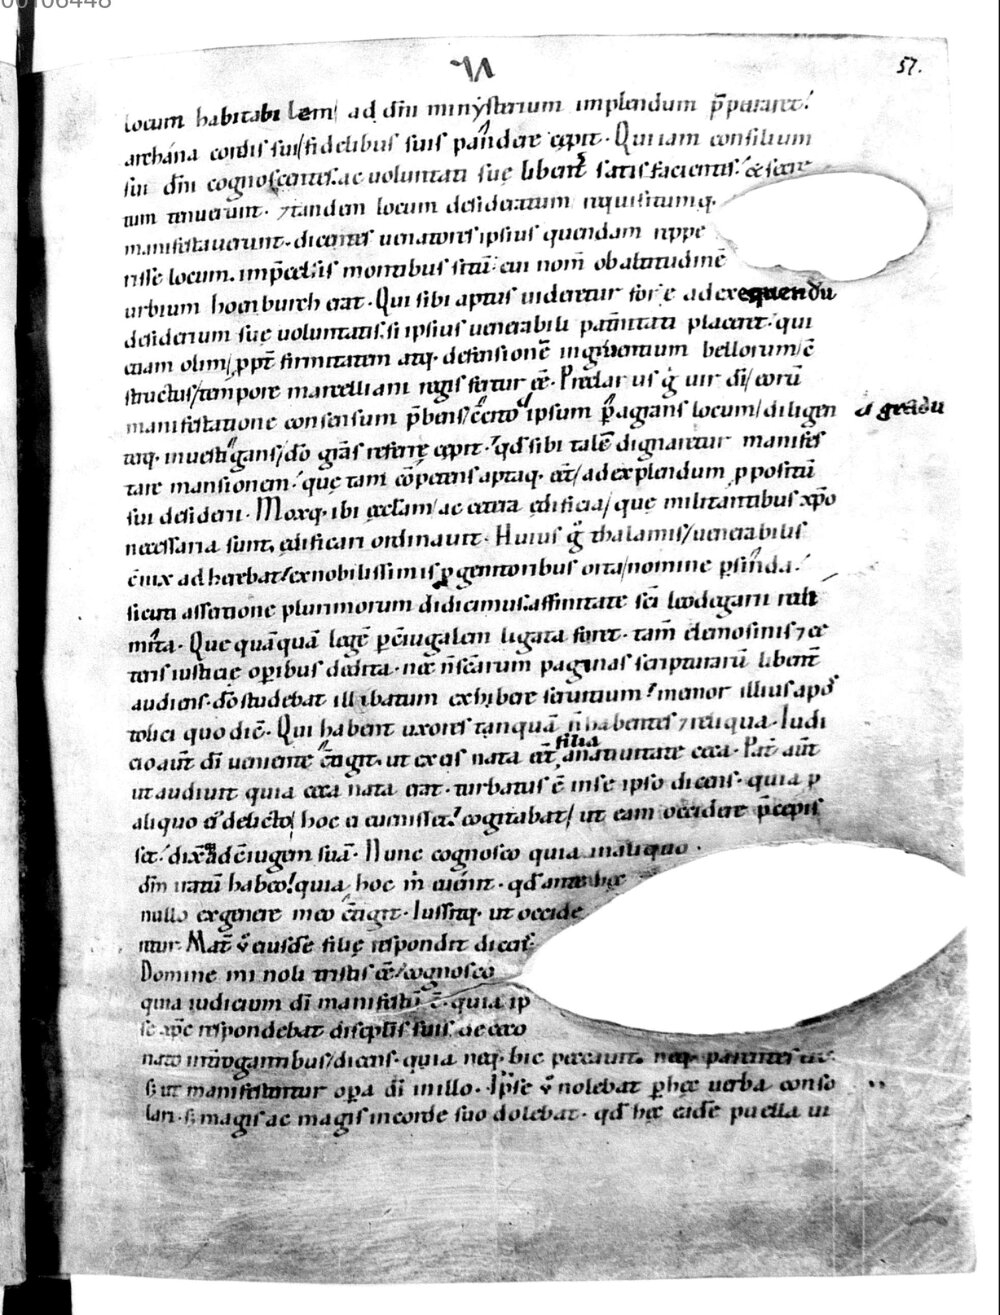 57.
locum habitabilem ad dn̄i minẏsterium implendum p̄pararet.'
archána cordis sui / fidelibus suis pandere cępit. Qui iam consilium
sui dn̄i cognoscentes. ac voluntati suę libent̄ satisfacientes.' & secre
tum tenuerunt. ⁊ tandem locum desideratum requisitumq.
manifestauerunt. dicentes uenatores ipsius quendam reppe
risse locum. in p̄celsis montibus sitū. cui nom̄ ob altitudinē
urbium hoenburch erat. Qui sibi aptus uideretur fore ad exequendū
desiderium suę uoluntatis. si ipsius uenerabili pat̄nitati placeret. qui
etiam olim / ꝓpt̄ firmitatem atq. defensionē ingruentium bellorum / ē
structus / tempore marcelliani regis fertur ēē. Preclarus g̊ uir dī / eorū
manifestatione consensum p̄bens / c̄cito ipsum ꝑagrans locum / diligen
a gradu
terq. inuestigans / dō grās referre cępit.' qđ sibi talē dignaretur manifes
tare mansionem.' quę tam cōpetens aptaq. eēt / ad explendum ꝓpositū
sui desiderii. Moxq. ibi ęcclam / ac cetera ędificia / quę militantibus xp̄o
necessaria sunt, ędificari ordinauit. Huius g̊ thalamis / uenerabilis
c̄iux adherebat / ex nobilissimis ꝓgenitoribus orta / nomine ꝑsinda.'
sicuti assertione plurimorum didicimus. affinitate sc̄i leodegarii reli
mita. Que quāquā lege ꝑ c̄iugalem ligata foret. tam̄ elemosinis ⁊ ce
teris iusticię oꝑibus dedita. nec n̄ scārum paginas scripturarū libent̄
audiens. dō studebat illibatum exhibere seruitium.' memor illius apos
tolici quo dic̄. Qui habent uxores tanquā n̄ habentes ⁊ reliqua. Iudi
filia
cio aūt dī ueniente c̄tigit. ut ex eis nata eēt a natiuitate ceca. Pat̄ aūt
ut audiuit quia ceca nata erat. turbatus ē in se ipso dicens. quia ꝓ
aliquo ei delicto hoc ei euenisset.' cogitabat / ut eam occidere p̄cepis
set.' dixit ad c̄iugem suā. Nunc cognosco quia in aliquo
dn̄m iratū habeo.' quia hoc m̄ euenit. qđ ante hec
nullo ex genere meo c̄tigit. Iussitq. ut occide
retur. Mat̄ v̊ eiusdē filię respondit dicens.
Domine mi noli tristis ēē / cognosco
quia iudicium dī manifestū ē. quia ip
se xp̄c respondebat discipl̄is suis. de ceco
nato int̄rogantibus / dicens. quia neq. hic peccauit. neq. parentes ei.
s; ut manifestentur oꝑa dī in illo. Ipse v̊ nolebat ꝑ hęc uerba conso
lari. s; magis ac magis in corde suo dolebat. qđ hęc eadē puella ui